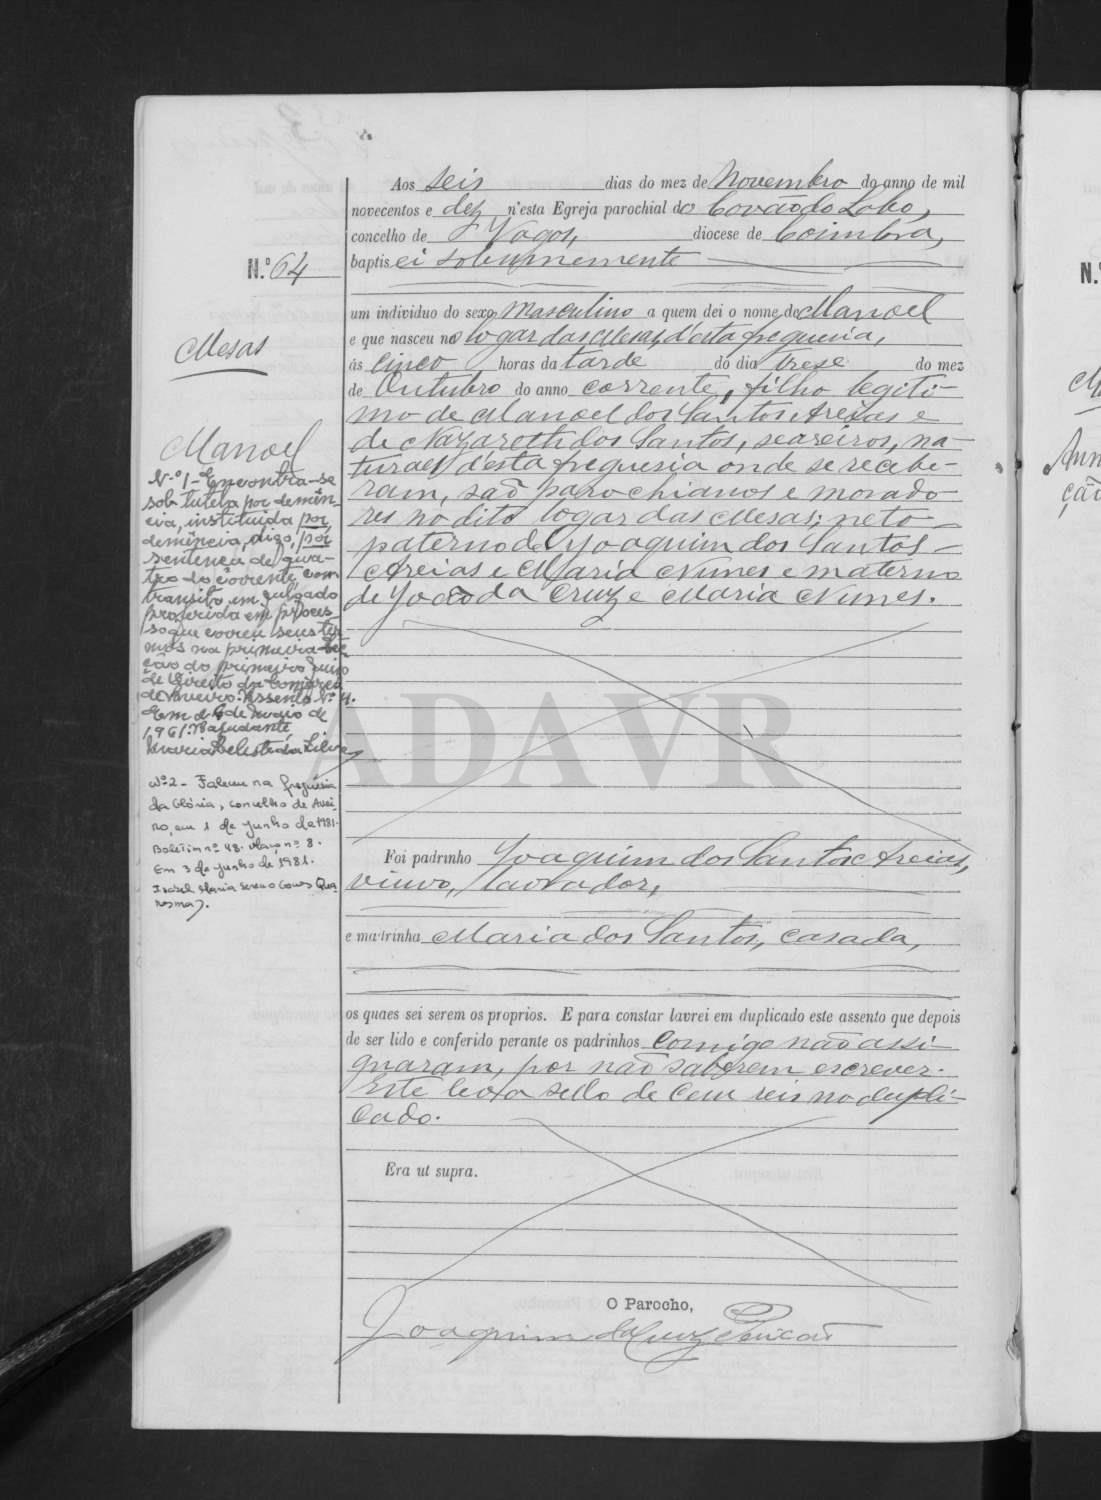 Aos seis dias do mez de Novembro do anno de mil
novecentos e dez n'esta Egreja parochial do Covão do Lobo,
concelho de Vagos, diocese de Coimbra,
N.º 64
baptisei solemnemente
um individuo do sexo masculino a quem dei o nome de Manoel
e que nasceu no logar das Mesas, d'esta freguesia,
Mesas
ás cinco horas da tarde do dia treze do mez
de Outubro do anno corrente, filho legiti-
mo de Manoel dos Santos Areias e
de Nazareth dos Santos, seareiros, na-
turaes d'esta freguesia onde se recebe-
ram, são parochianos e morado-
res no dito logar das Mesas; neto
paterno de Joaquim dos Santos
Areias e Maria Nunes e materno
de João da Cruz e Maria Nunes.
Manoel
N.º 1 - Encontra-se
sob tutela por demên-
cia, instituida por
demência, digo, por
sentença de qua-
tro do corrente, com
transito em julgado
proferida em proces-
so que correu seus ter-
mos na primeira sec-
ção do primeiro juizo
de Direito da Comarca
de Aveiro. Assento Nº 4.
Em de Maio de
1961. A ajudante,
Maria Celeste da Silva
Nº 2 - Faleceu na freguesia
da Glória, concelho de Avei-
ro, em 1 de Junho de 1981.
Boletim nº 48. Maço nº 8.
Em 3 de Junho de 1981.
Isabel Maria Gomes Qua-
resma).
ADAVR
Foi padrinho Joaquim dos Santos Areias,
viuvo, lavrador,
e madrinha Maria dos Santos, casada,
os quaes sei serem os proprios. E para constar lavrei em duplicado este assento que depois
de ser lido e conferido perante os padrinhos comigo não assi-
gnaram, por não saberem escrever.
Este leva sello de cem reis no dupli-
cado.
Era ut supra.
O Parocho,
Joaquim da Cruz
N.º